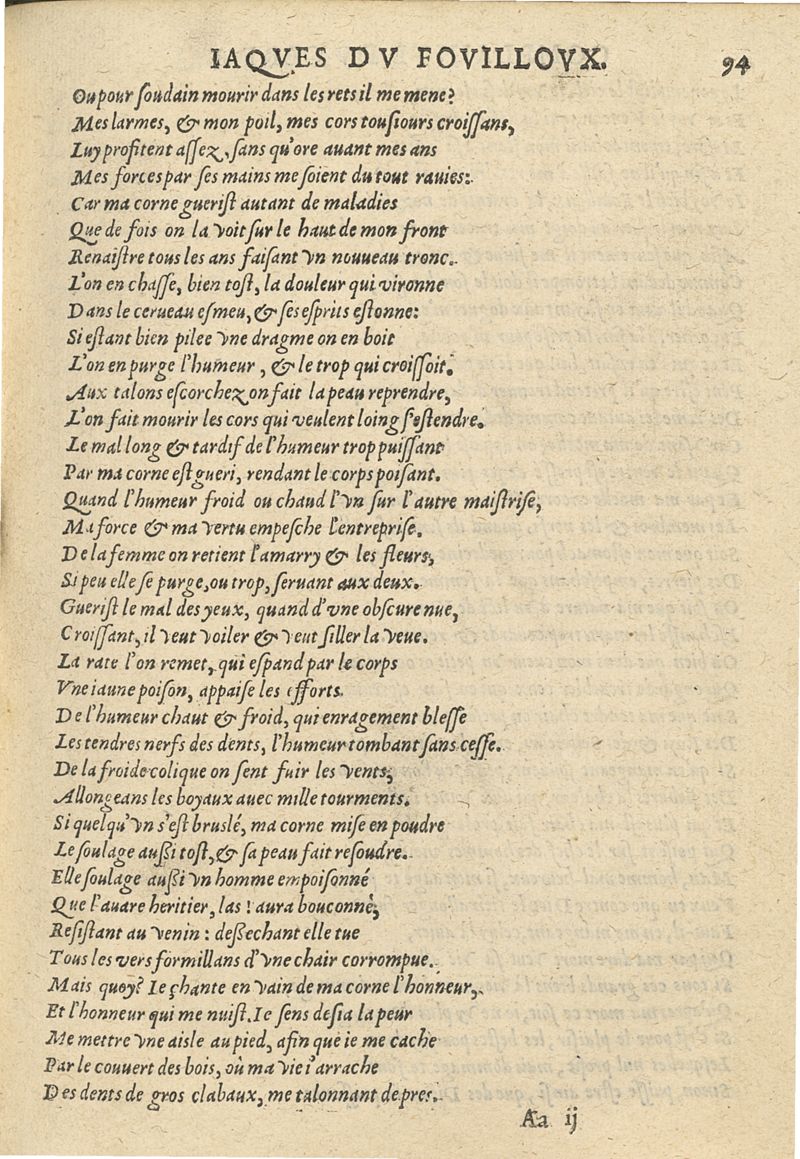 IAQVES DV FOVILLOVX. 94
Ou pour ſoudain mourir dans les rets il me mene?
Mes larmes, & mon poil, mes cors touſiours croiſſans,
Luy profitent aſſez, ſans qu'ore auant mes ans
Mes forces par ſes mains me ſoient du tout rauies:
Car ma corne gueriſt autant de maladies
Que de fois on la voit ſur le haut de mon front
Renaiſtre tous les ans faiſant vn nouueau tronc.
L'on en chaſſe, bien toſt, la douleur qui vironne
Dans le cerueau eſmeu, & ſes eſprits eſtonne:
Si eſtant bien pilee vne dragme on en boit
L'on en purge l'humeur, & le trop qui croiſſoit.
Aux talons eſcorchez on fait la peau reprendre,
L'on fait mourir les cors qui veulent loing s'eſtendre.
Le mal long & tardif de l'humeur trop puiſſant
Par ma corne eſt gueri, rendant le corps poiſant.
Quand l'humeur froid ou chaud l'vn ſur l'autre maiſtriſe,
Ma force & ma vertu empeſche l'entrepriſe.
De la femme on retient l'amarry & les fleurs,
Si peu elle ſe purge, ou trop, ſeruant aux deux.
Gueriſt le mal des yeux, quand d'vne obſcure nue,
Croiſſant, il veut voiler & veut ſiller la veue.
La rate l'on remet, qui eſpand par le corps
Vne iaune poiſon, appaiſe les efforts
De l'humeur chaut & froid, qui enragement bleſſe
Les tendres nerfs des dents, l'humeur tombant ſans ceſſe.
De la froide colique on ſent fuir les vents,
Allongeans les boyaux auec mille tourments.
Si quelqu'vn s'eſt bruslé, ma corne miſe en poudre
Le ſoulage außi toſt, & ſa peau fait reſoudre.
Elle ſoulage außi vn homme empoiſonné
Que l'auare heritier, las! aura bouconné,
Reſiſtant au venin: deßechant elle tue
Tous les vers formillans d'vne chair corrompue.
Mais quoy? Ie chante en vain de ma corne l'honneur,
Et l'honneur qui me nuiſt. Ie ſens deſia la peur
Me mettre vne aisle au pied, afin que ie me cache
Par le couuert des bois, où ma vie i'arrache
Des dents de gros clabaux, me talonnant de pres.
Aa ij